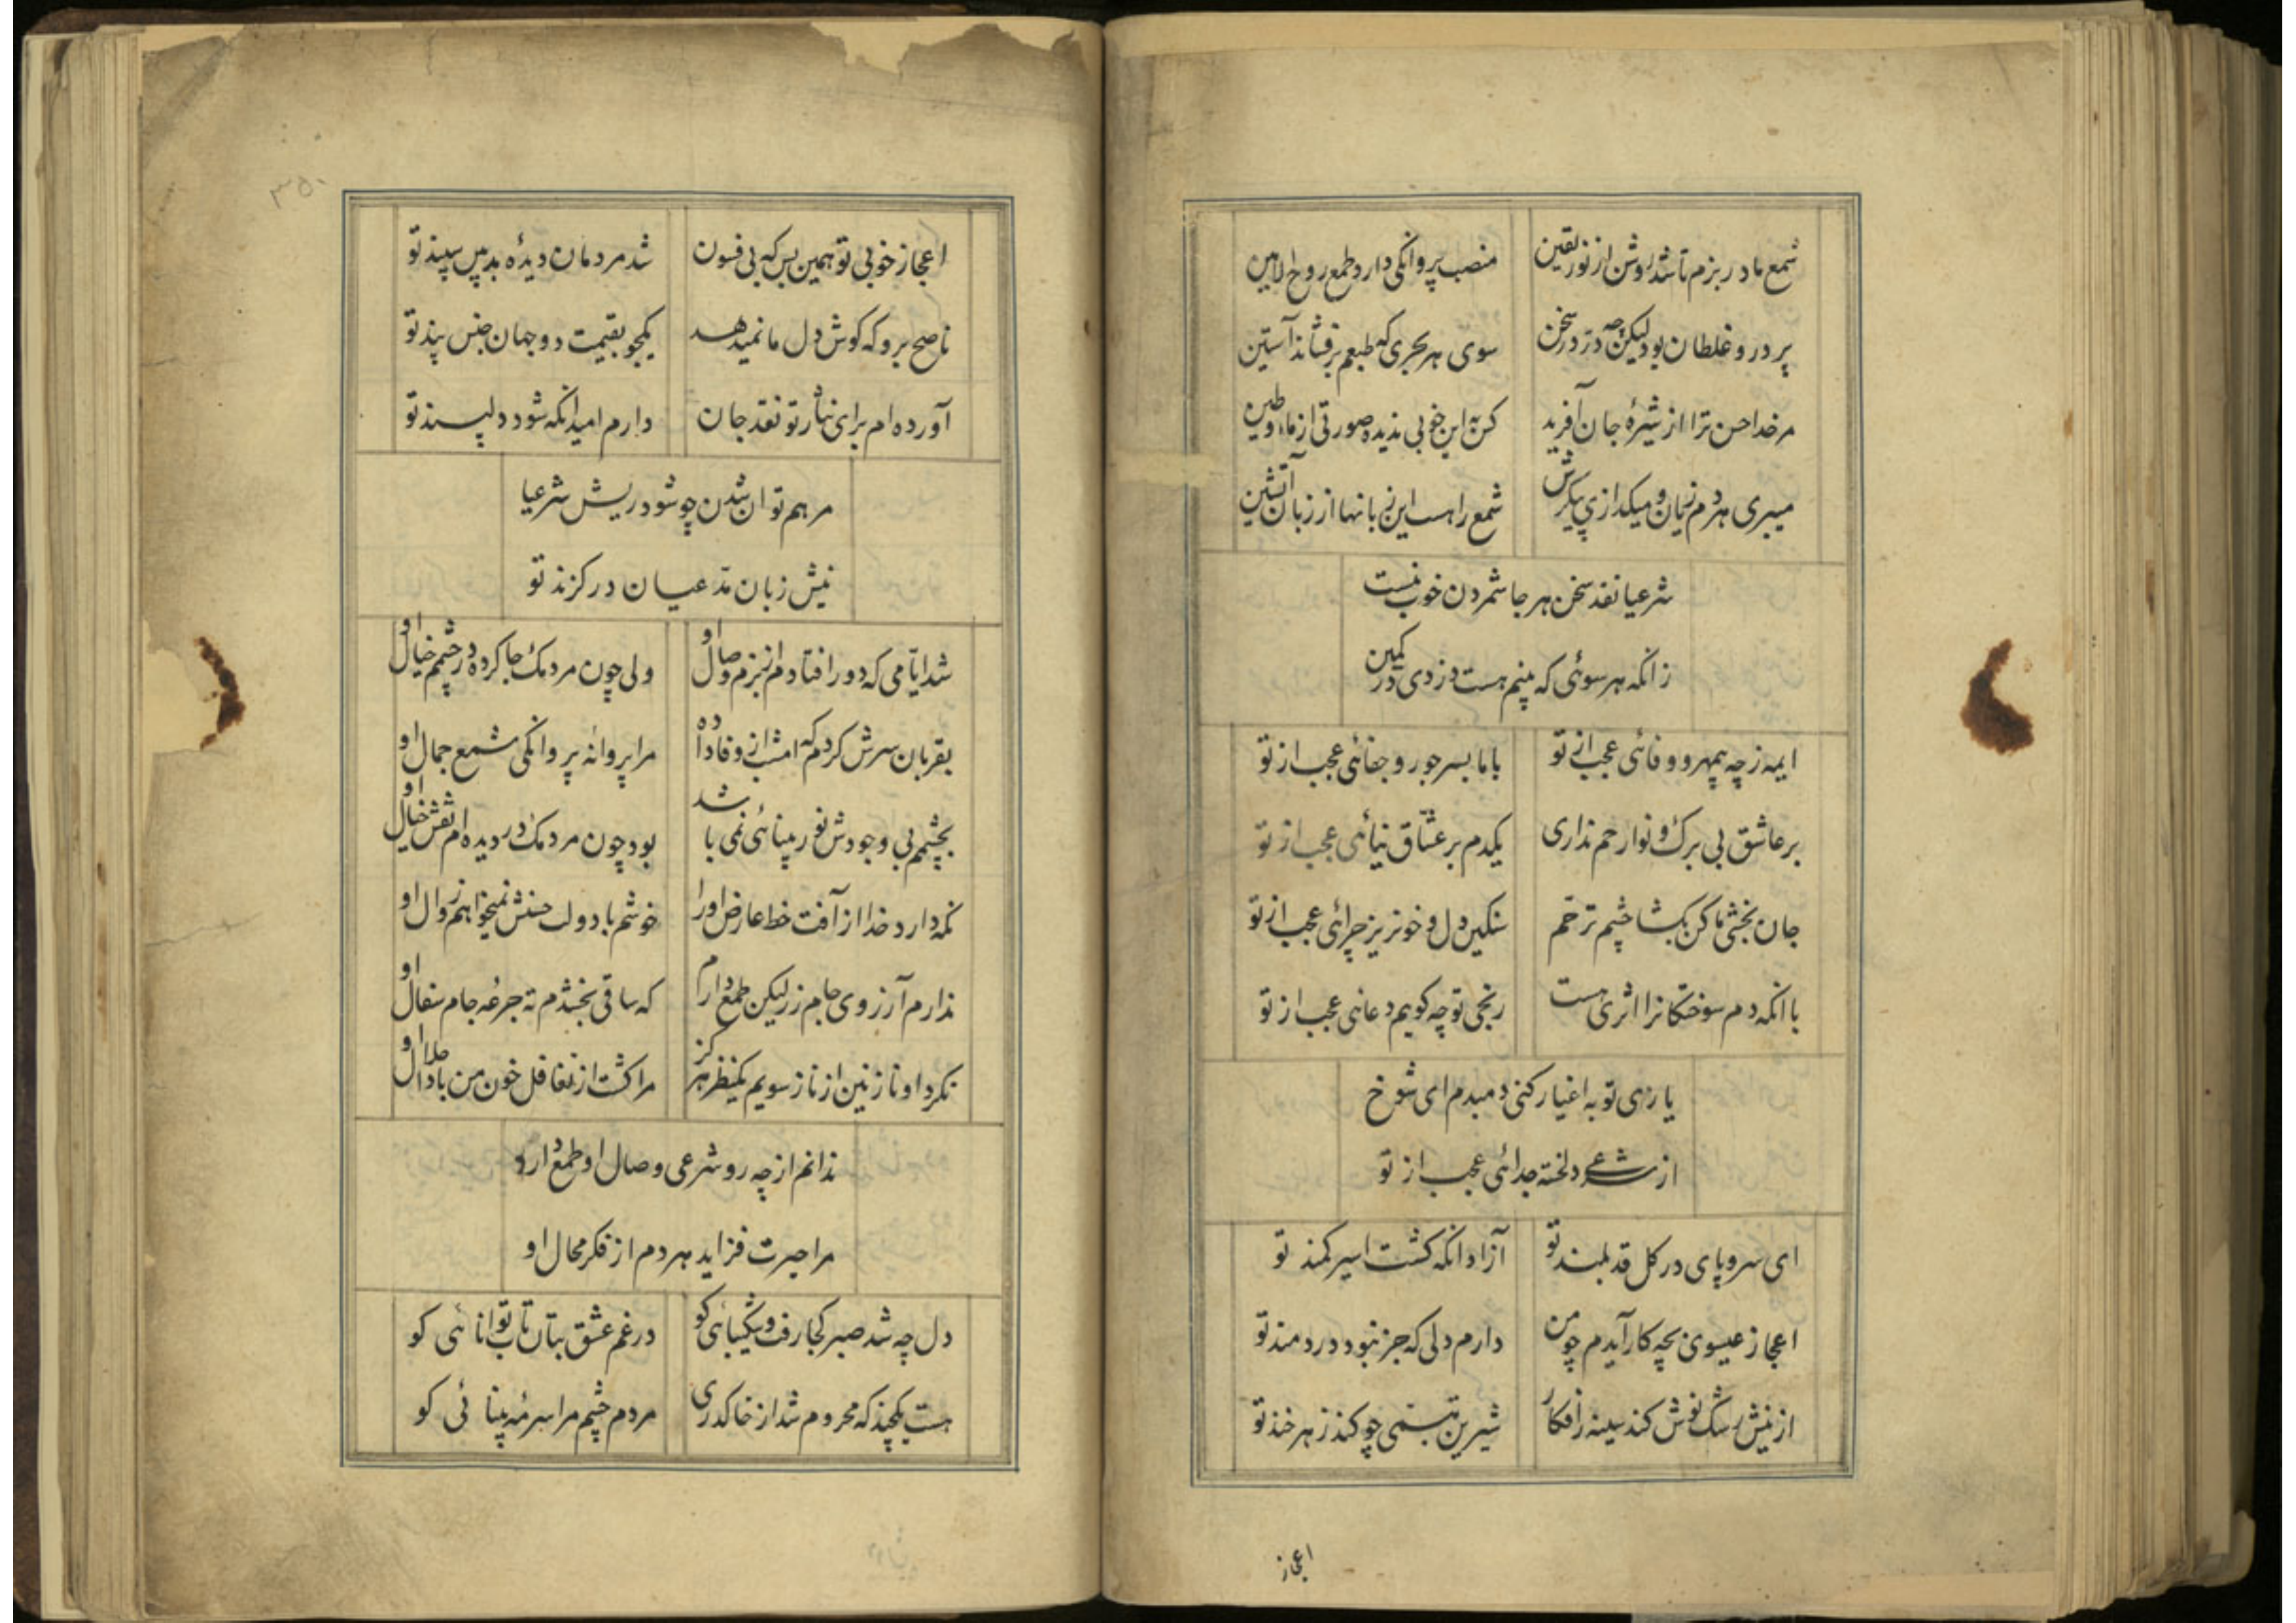 شمع ما در بزم تا شد روشن از نور یقین
منصب پروانگی دارد طمع روح الامین
پر در و غلطان بود لیکن چه در در سخن
سوی هر بحری که طبعم برفشاند آستین
مر خدا حسن ترا از شیرهٔ جان آفرید
کس به این خوبی ندیده صورتی از ماء و طین
میبری هر دم زبان و میگدازی پیکرش
شمع را هست این زبانها از زبان آتشین
شرعیا نقد سخن هر جا شمردن خوب نیست
زانکه هر سوئی که بینم هست دزدی در کمین
ایمه ز چه بیمهر و وفائی عجب از تو
با ما بسر جور و جفائی عجب از تو
بر عاشق بی برک و نوا رحم نداری
یکدم بر عشّاق نیائی عجب از تو
جان بخشی ما کن بکشا چشم ترحّم
سنکین دل و خونریز چرائی عجب از تو
با انکه دم سوختکانرا اثری هست
رنجی تو چه کویم دعائی عجب از تو
یاری تو به اغیار کنی دمبدم ای شوخ
از شرعی دلخسته جدائی عجب از تو
ای سرو پای در کل قد بلند تو
آزاد انکه کشت اسیر کمند تو
اعجاز عیسوی بچه کار آیدم چو من
دارم دلی که جز نبود دردمند تو
از نیش رشک نوش کند سینه را فکار
شیرین تبسّمی چو کند زهرخند تو
اعجاز
۳۵۰
اعجاز خوبی تو همین بس که بی فسون
شد مردمان دیدهٔ بدبین سپند تو
ناصح برو که کوش دل ما نمیدهد
یکجو بقیمت دو جهان جنس پند تو
آورده ام برای نثار تو نقد جان
دارم امید انکه شود دلپسند تو
مرهم توان شدن چو شود ریش شرعیا
نیش زبان مدّعیان در کزند تو
شد ایّامی که دور افتادم از بزم وصال او
ولی چون مردمک جا کرده در چشمم خیال او
بقربان سرش کردم که امشب از وفا داده
مرا پروانهٔ پروانکی شمع جمال او
بچشمم بی وجودش نور بینائی نمی باشد
بود چون مردمک در دیده ام نقش خیال او
نکه دارد خدا از آفت خط عارض او را
خوشم با دولت حسنش نمیخواهم زوال او
ندارم آرزوی جام زر لیکن طمع دارم
که ساقی بخشدم ته جرعهٔ جام سفال او
نکرد او نازنین از ناز سویم یکنظر هرکز
مرا کشت از تغافل خون من بادا حلال او
ندانم از چه رو شرعی وصال او طمع دارد
مرا حیرت فزاید هر دم از فکر محال او
دل چه شد صبر کجا رفت و شکیبائی کو
در غم عشق بتان تاب توانائی کو
هست یکچند که محروم شد از خاک دری
مردم چشم مرا سرمهٔ بینائی کو